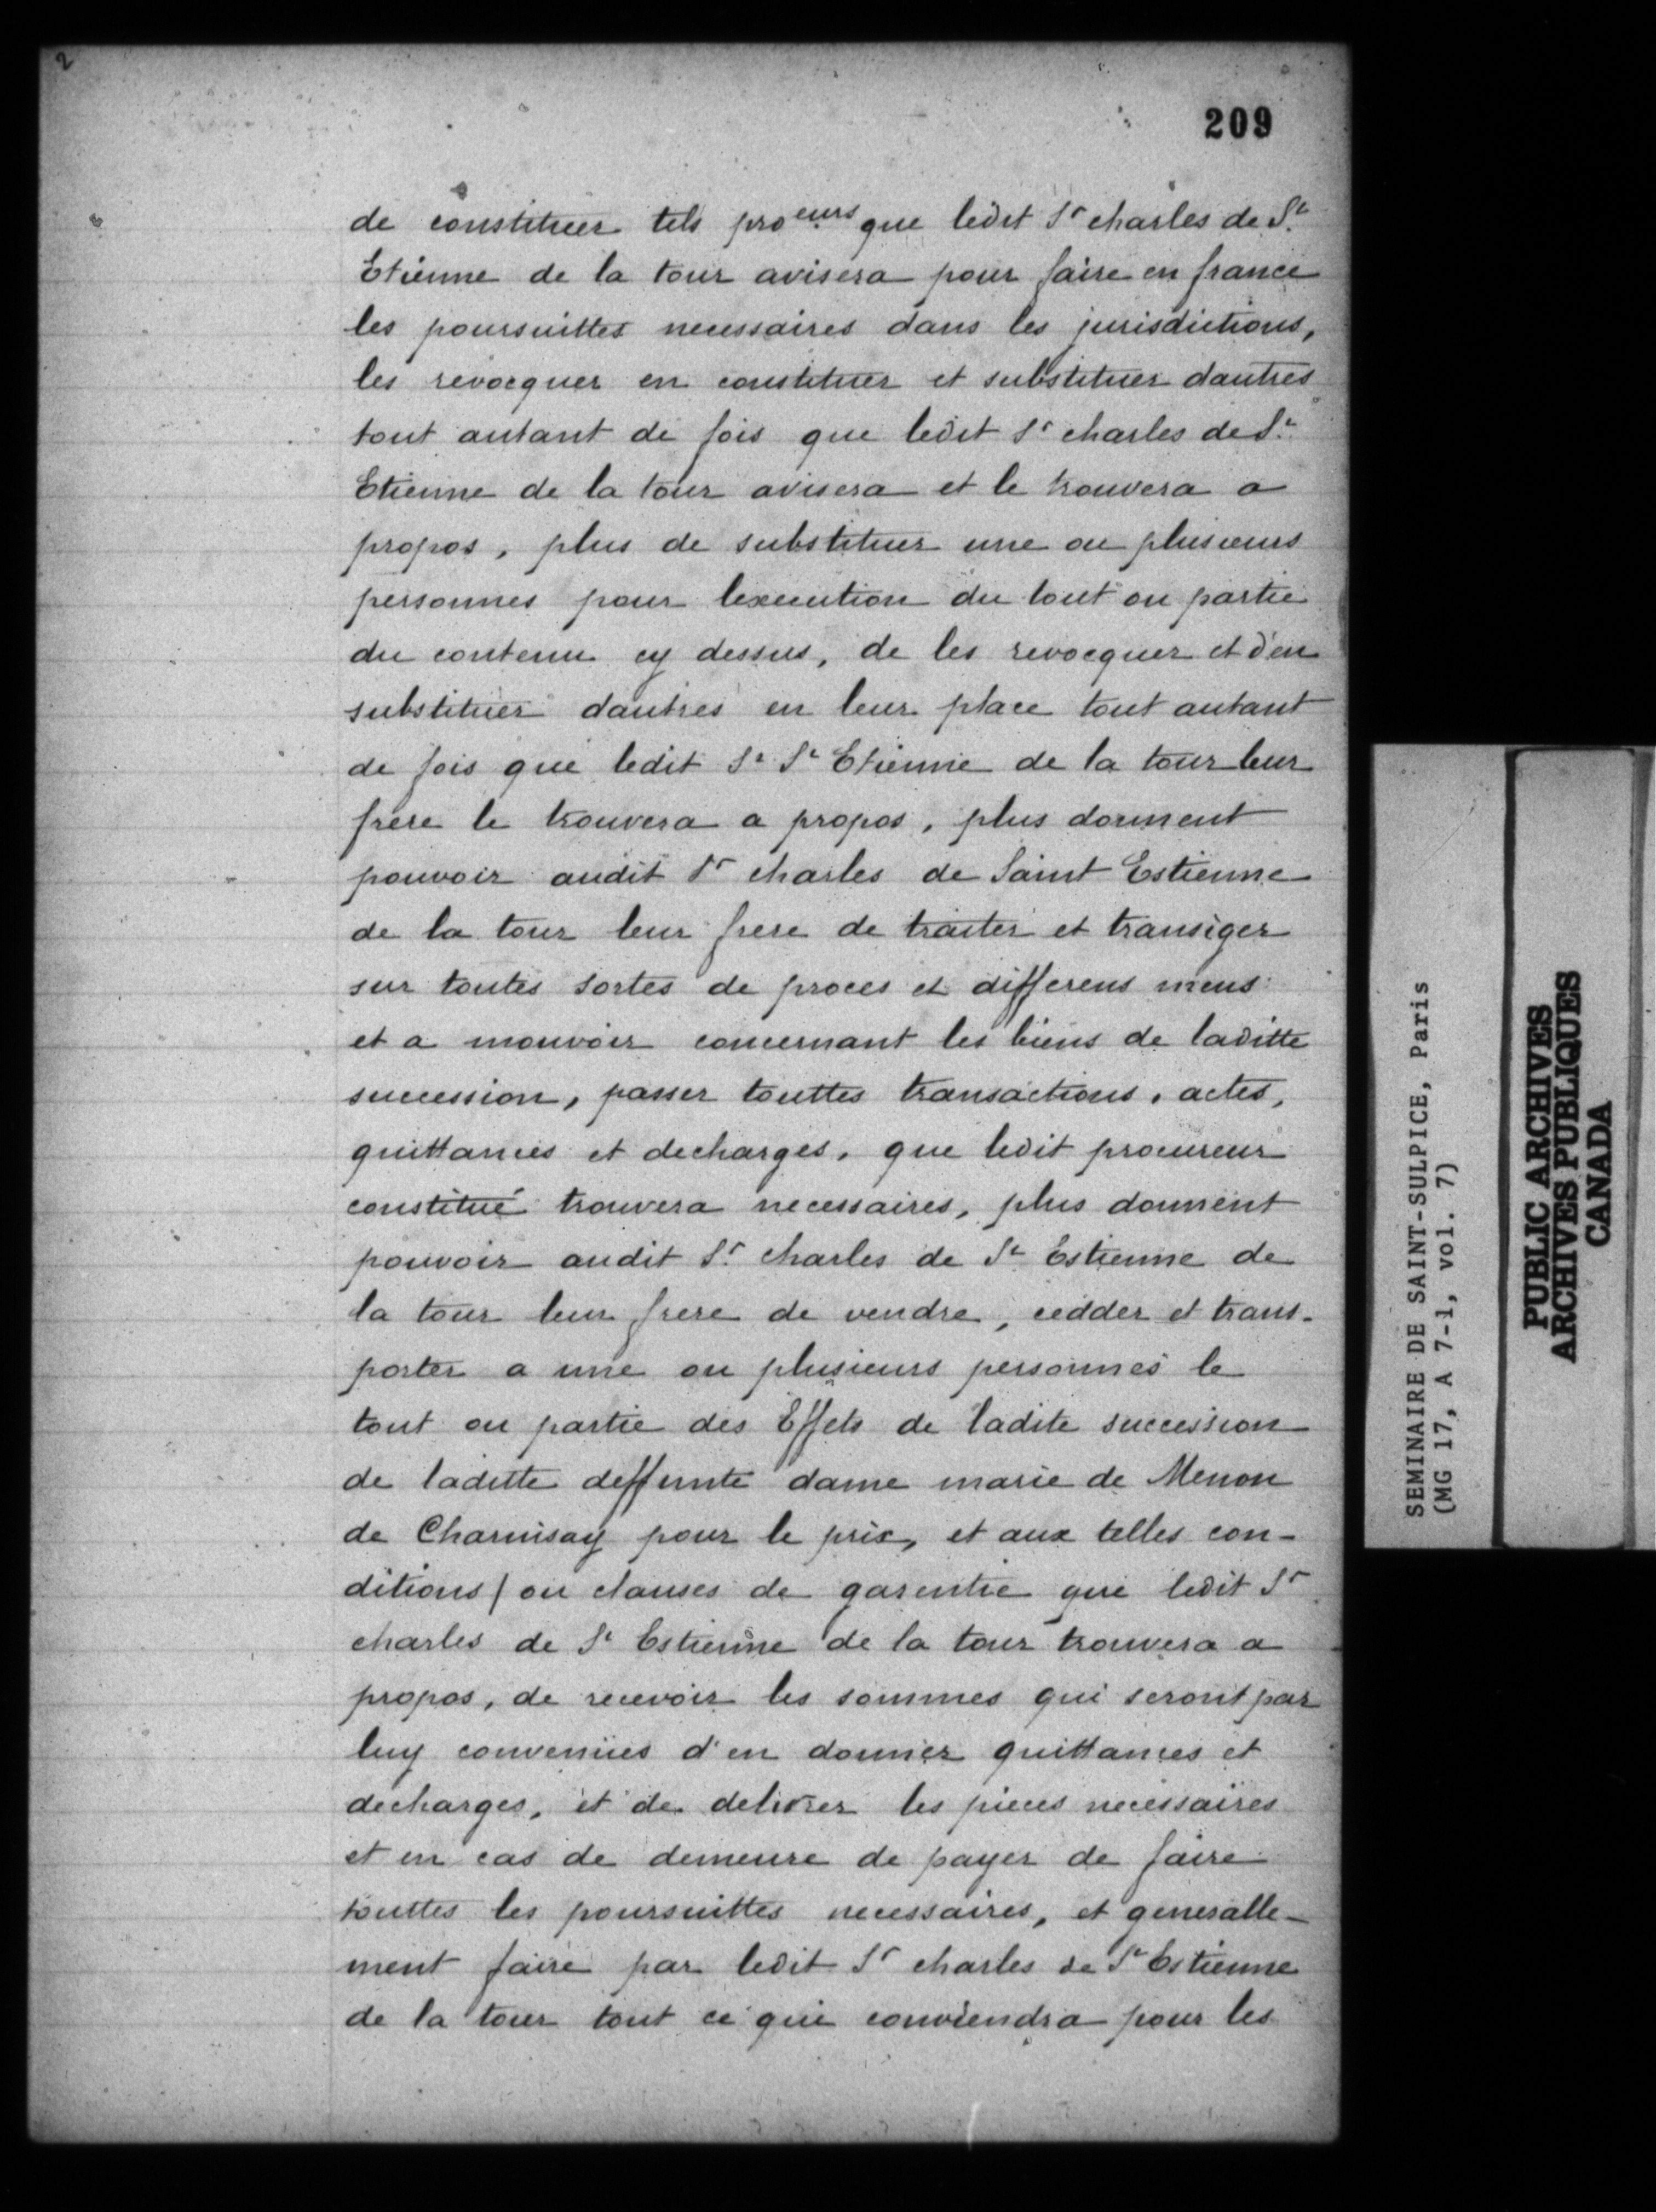 209
de constituer tels pro.eurs que ledit Sr charles de St.
Etienne de la tour avisera pour faire en france
les poursuittes necessaires dans les jurisdictions,
les revocquer en constituer et substituer dautres
tout autant de fois que ledit Sr charles de St.
Etienne de la tour avisera et le trouvera a
propos, plus de substituer une ou plusieurs
personnes pour lexecution du tout ou partie
du contenu cy dessus, de les revocquer et d'en
substituer dautres en leur place tout autant
de fois que ledit Sr St Etienne de la tour leur
frere le trouvera a propos, plus donnent
pouvoir audit Sr charles de Saint Estienne
de la tour leur frere de traiter et transiger
sur toutes sortes de proces et differens meus
et a mouvoir concernant les biens de laditte
succession, passer touttes transactions, actes,
quittances et decharges, que ledit procureur
constitué trouvera necessaires, plus donnent
pouvoir audit Sr. charles de St Estienne de
la tour leur frere de vendre, cedder et trans-
porter a une ou plusieurs personnes le
tout ou partie des Effets de ladite succession
de laditte deffunte dame marie de Menon
de Charnisay pour le prix, et aux telles con-
ditions / ou clauses de garentie que ledit Sr
charles de St Estienne de la tour trouvera a
propos, de recevoir les sommes qui seront par
luy convenües d'en donner quittances et
decharges, et de delivrer les pieces necessaires
et en cas de demeure de payer de faire
touttes les poursuittes necessaires, et generalle-
ment faire par ledit Sr charles de St Estienne
de la tour tout ce qui conviendra pour les
SEMINAIRE DE SAINT-SULPICE, Paris
(MG 17, A 7-1, vol. 7)
PUBLIC ARCHIVES
ARCHIVES PUBLIQUES
CANADA